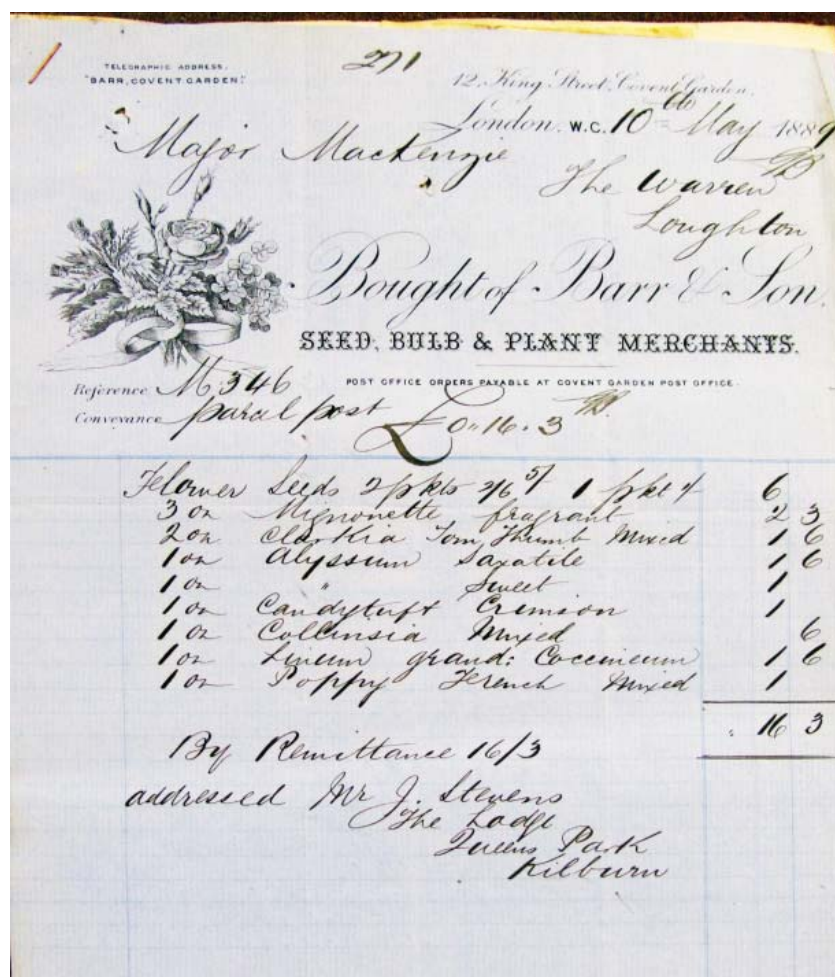 271
TELEGRAPHIC ADDRESS.
"BARR, COVENT GARDEN."
12, King Street, Covent Garden.
London. W.C. 10th May 1889
Major Mackenzie
The Warren
Loughton
Bought of Barr & Son.
SEED, BULB & PLANT MERCHANTS.
POST OFFICE ORDERS PAYABLE AT COVENT GARDEN POST OFFICE.
Reference M.346
Conveyance parcel post
£0.16.3
Flower Seeds 2 pkts 2/6 5/ 1 pkt 1/ 6
3 oz Mignonette fragrant 2 3
2 oz Clarkia Tom Thumb Mixed 1 6
1 oz Alyssum Saxatile 1 6
1 oz " Sweet 1
1 oz Candytuft Crimson 1
1 oz Collinsia Mixed 6
1 oz Lineum grand: Coccineum 1 6
1 oz Poppy French Mixed 1
16 3
By Remittance 16/3
addressed Mr J. Stevens
The Lodge
Queens Park
Kilburn